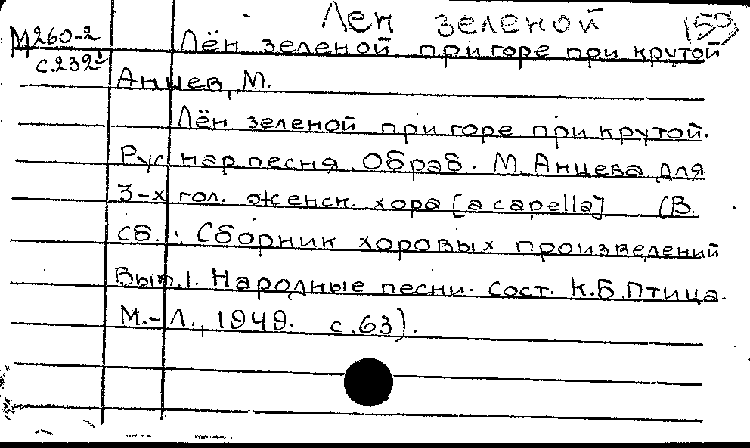 Лен зеленой 159
М260-2 Лён зеленой при горе при крутой
с.2392
Анцев, М.
Лён зеленой при горе при крутой.
Рус нар песня. Обраб. М. Анцева для
3-х гол. женск. хора [a capella] (В
сб.: Сборник хоровых произведений
Вып.1. Народные песни. Сост. К.Б.Птица.
М.-Л., 1949. с.63).